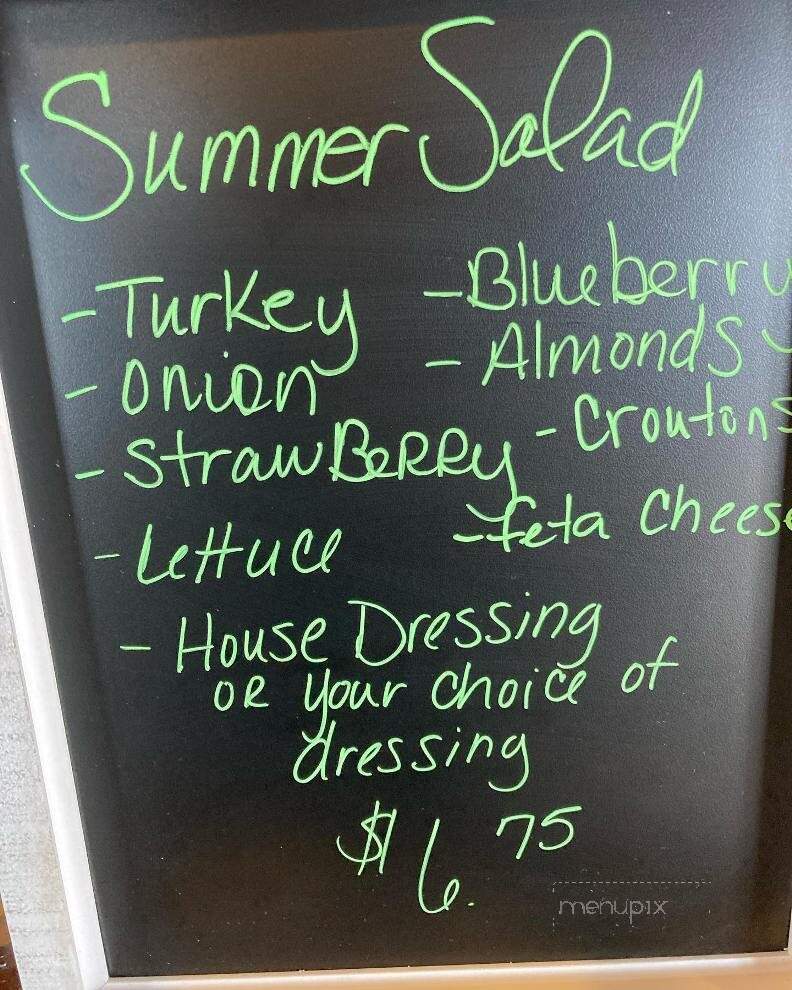 Summer Salad
- Turkey
- Onion
- StrawBeRRy
- Lettuce
- Blueberry
- Almonds
- Croutons
- feta Cheese
- House Dressing
OR your choice of
dressing
$6.75
menupix